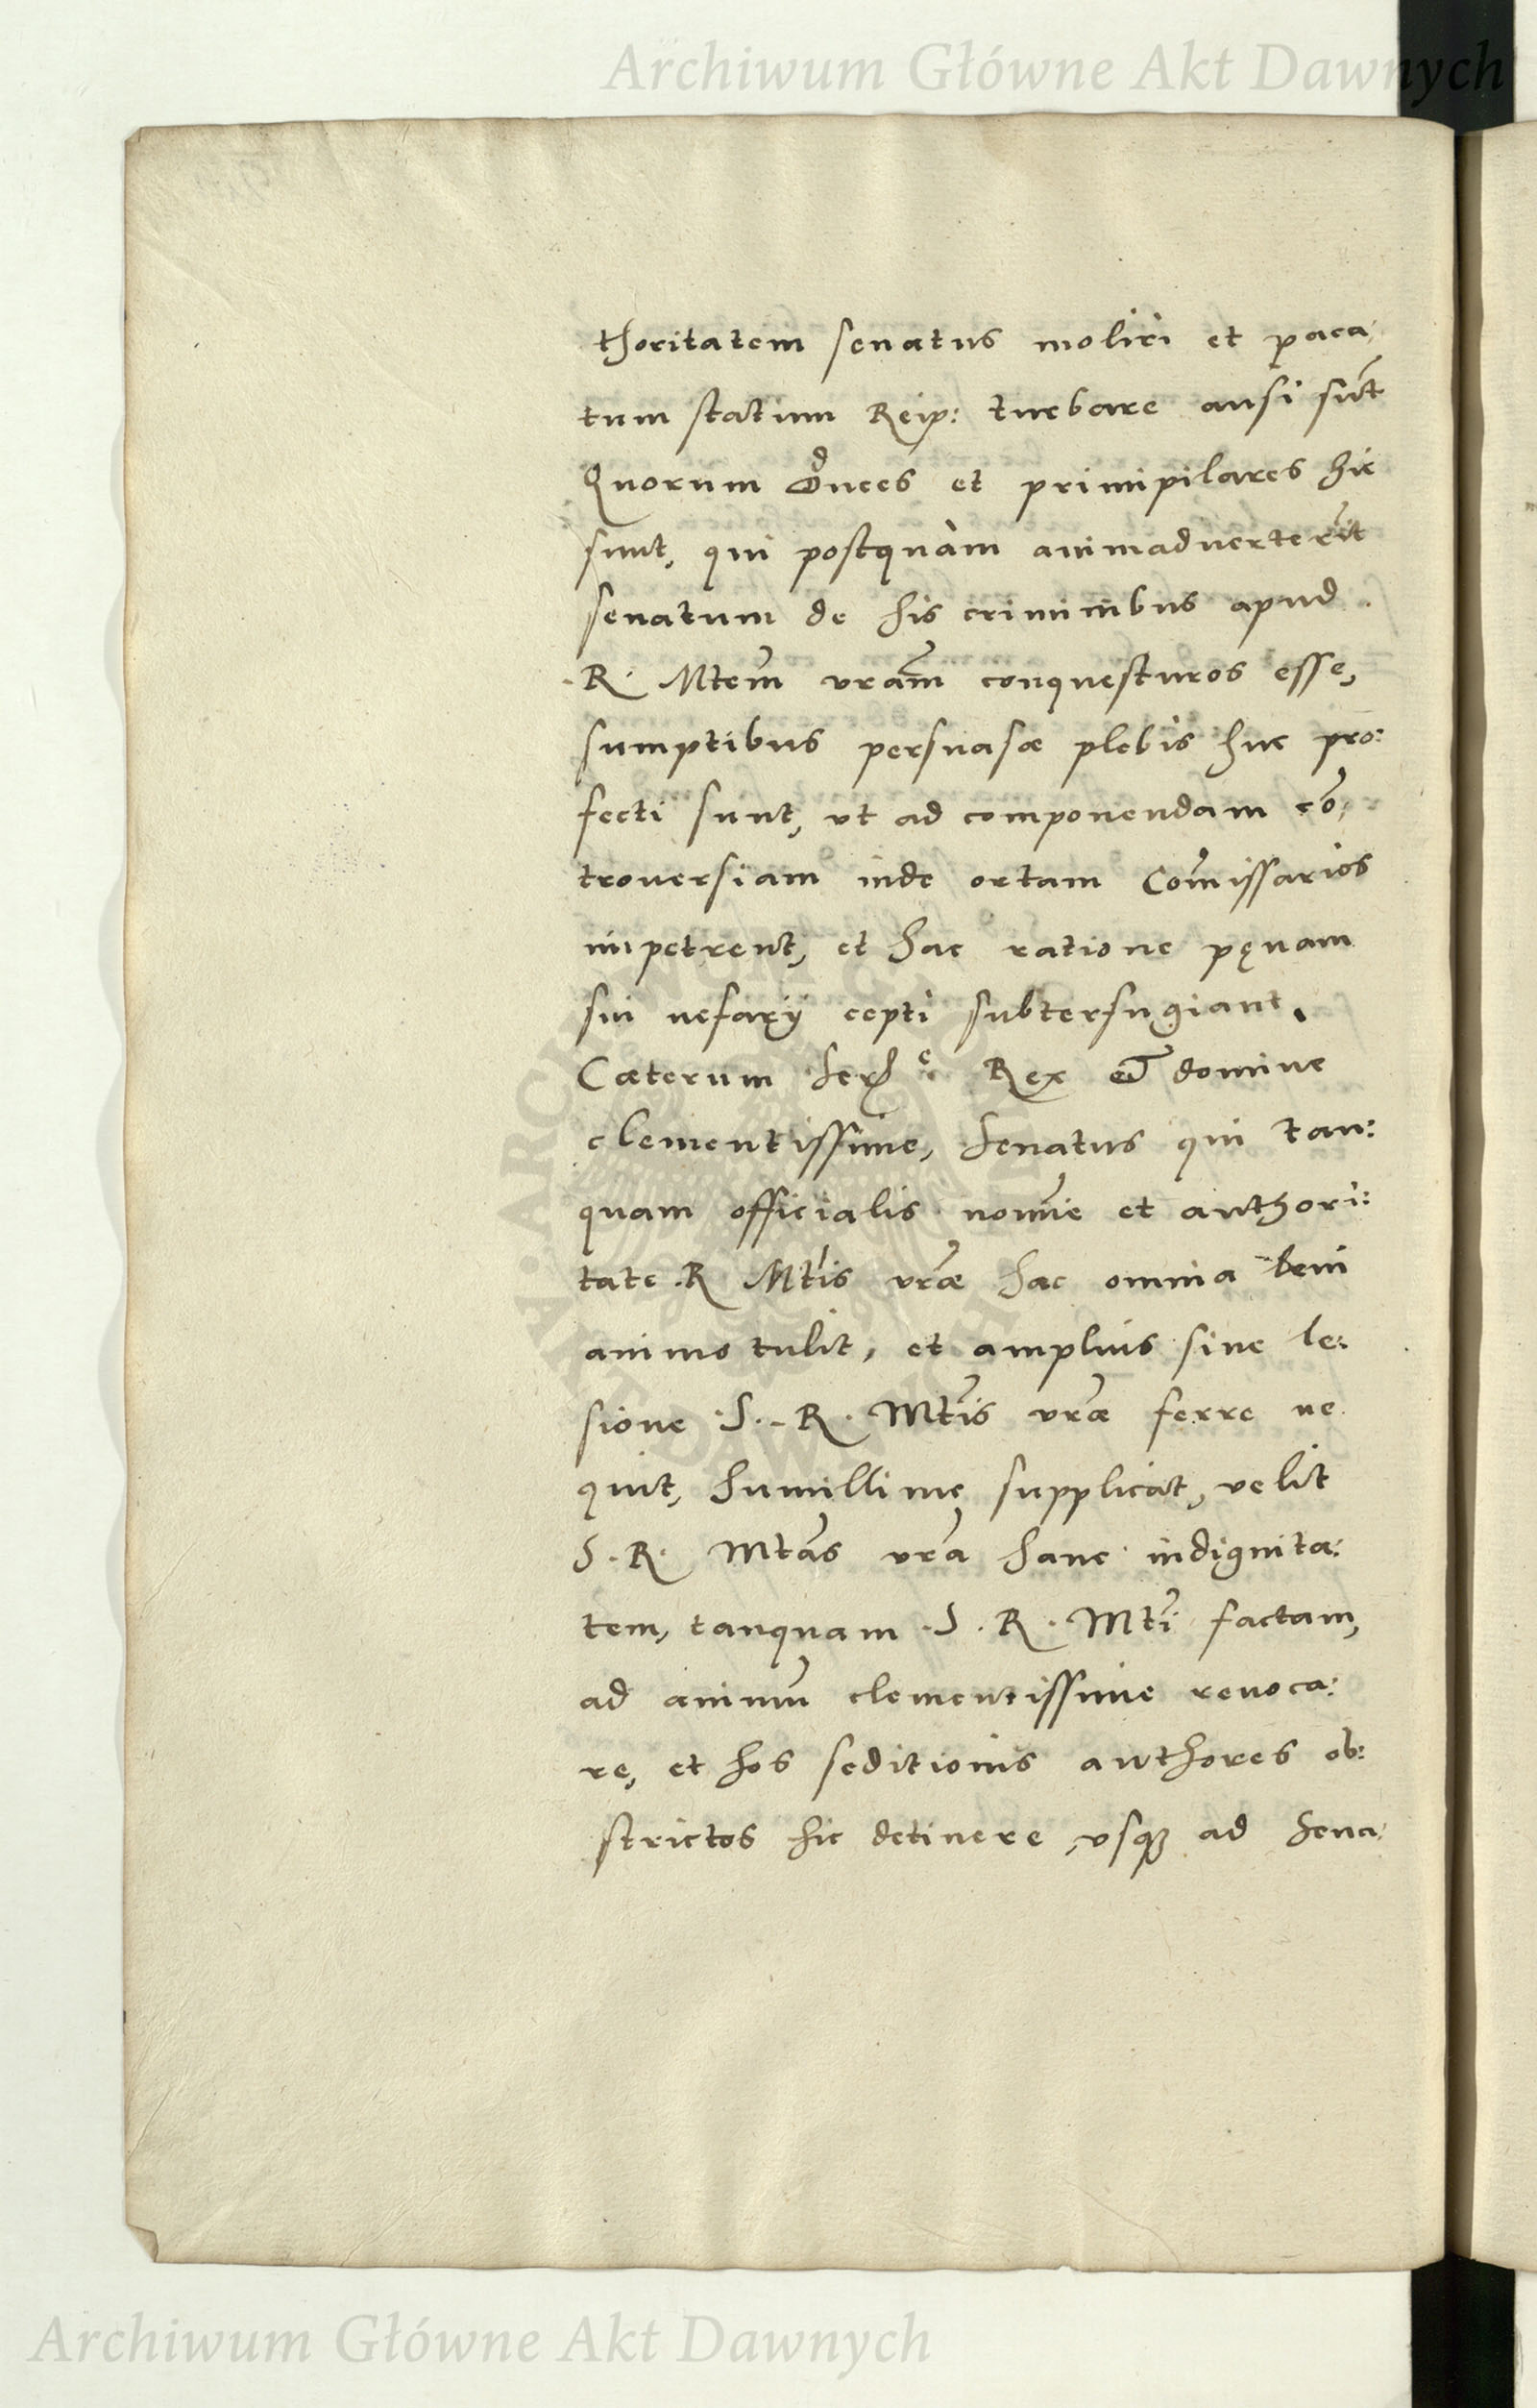 Archiwum Główne Akt Dawnych
thoritatem senatus moliri et paca,
tum statum Reip: turbare ausi sūt
Quorum duces et primipilares hic
sunt, qui postquàm animaduerterūt
senatum de his criminibus apud
R. Mtem̃ vram̃ conquesturos esse,
sumptibus persuasæ plebis huc pro:
fecti sunt, vt ad componendam cō,
trouersiam inde ortam Com̃issarios
impetrent, et hac ratione pęnam
sui nefarij cepti subterfugiant.
Cæterum Ser^e Rex et domine
clementissime, Senatus qui tan:
quam officialis nomīe et authori:
tate R Mtĩs vrãe hac omnia leni
animo tulit, et amplius sine le:
sione S. R. Mtĩs vrãe ferre ne
quit, humillime supplicat, velit
S. R. Mtãs vrã hanc indignita:
tem, tanquam S. R. Mtĩ factam,
ad animũ clementissime reuoca:
re, et hos seditionis authores ob:
strictos hic detinere, vsqꝫ ad Sena,
ARCHIWUM GŁÓWNE AKT DAWNYCH
Archiwum Główne Akt Dawnych